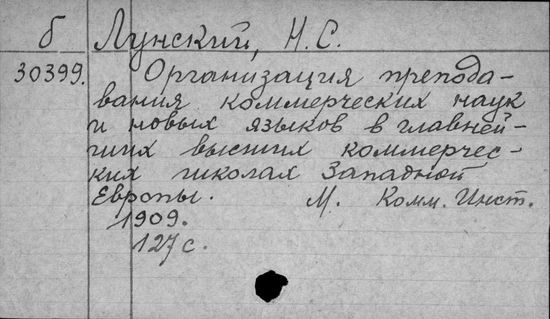 б Лунский, Н.С.
30399. Организация препода-
вания коммерческих наук
и новых языков в главней-
ших высших коммерчес-
ких школах Западной
Европы. М. Комм. Инст.
1909.
127 с.